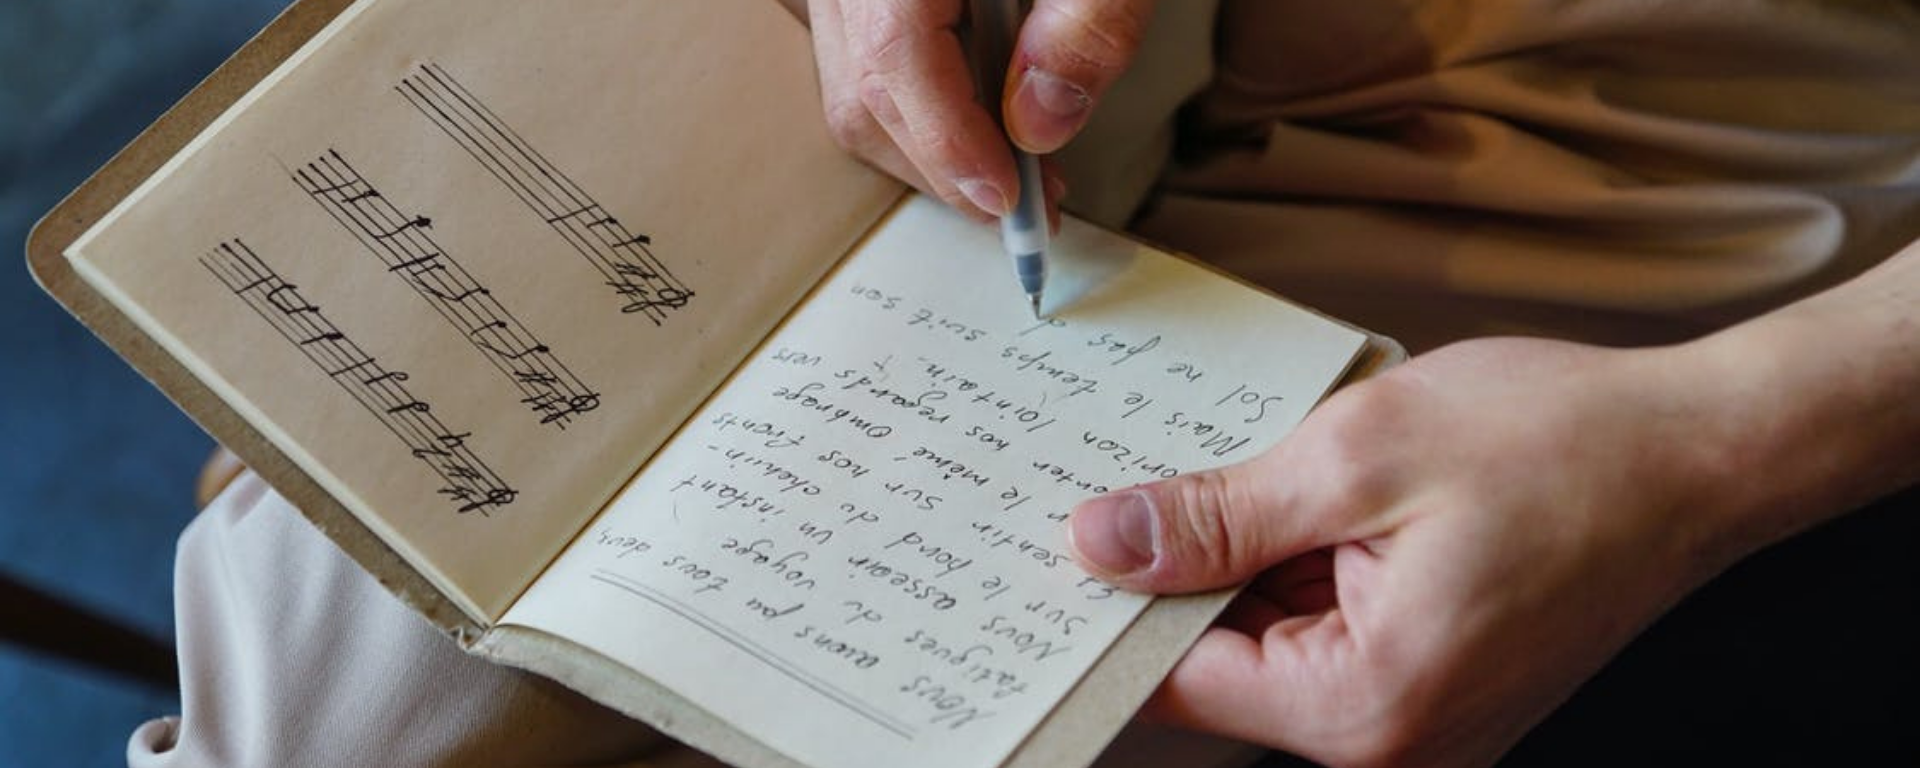 Nous avons pu tous deux,
fatigués du voyage
Nous asseoir un instant
sur le bord du chemin-
Et sentir sur nos fronts
le même ombrage
nos regards vers
lointain.
Mais le temps suit son
Sol ne pas d